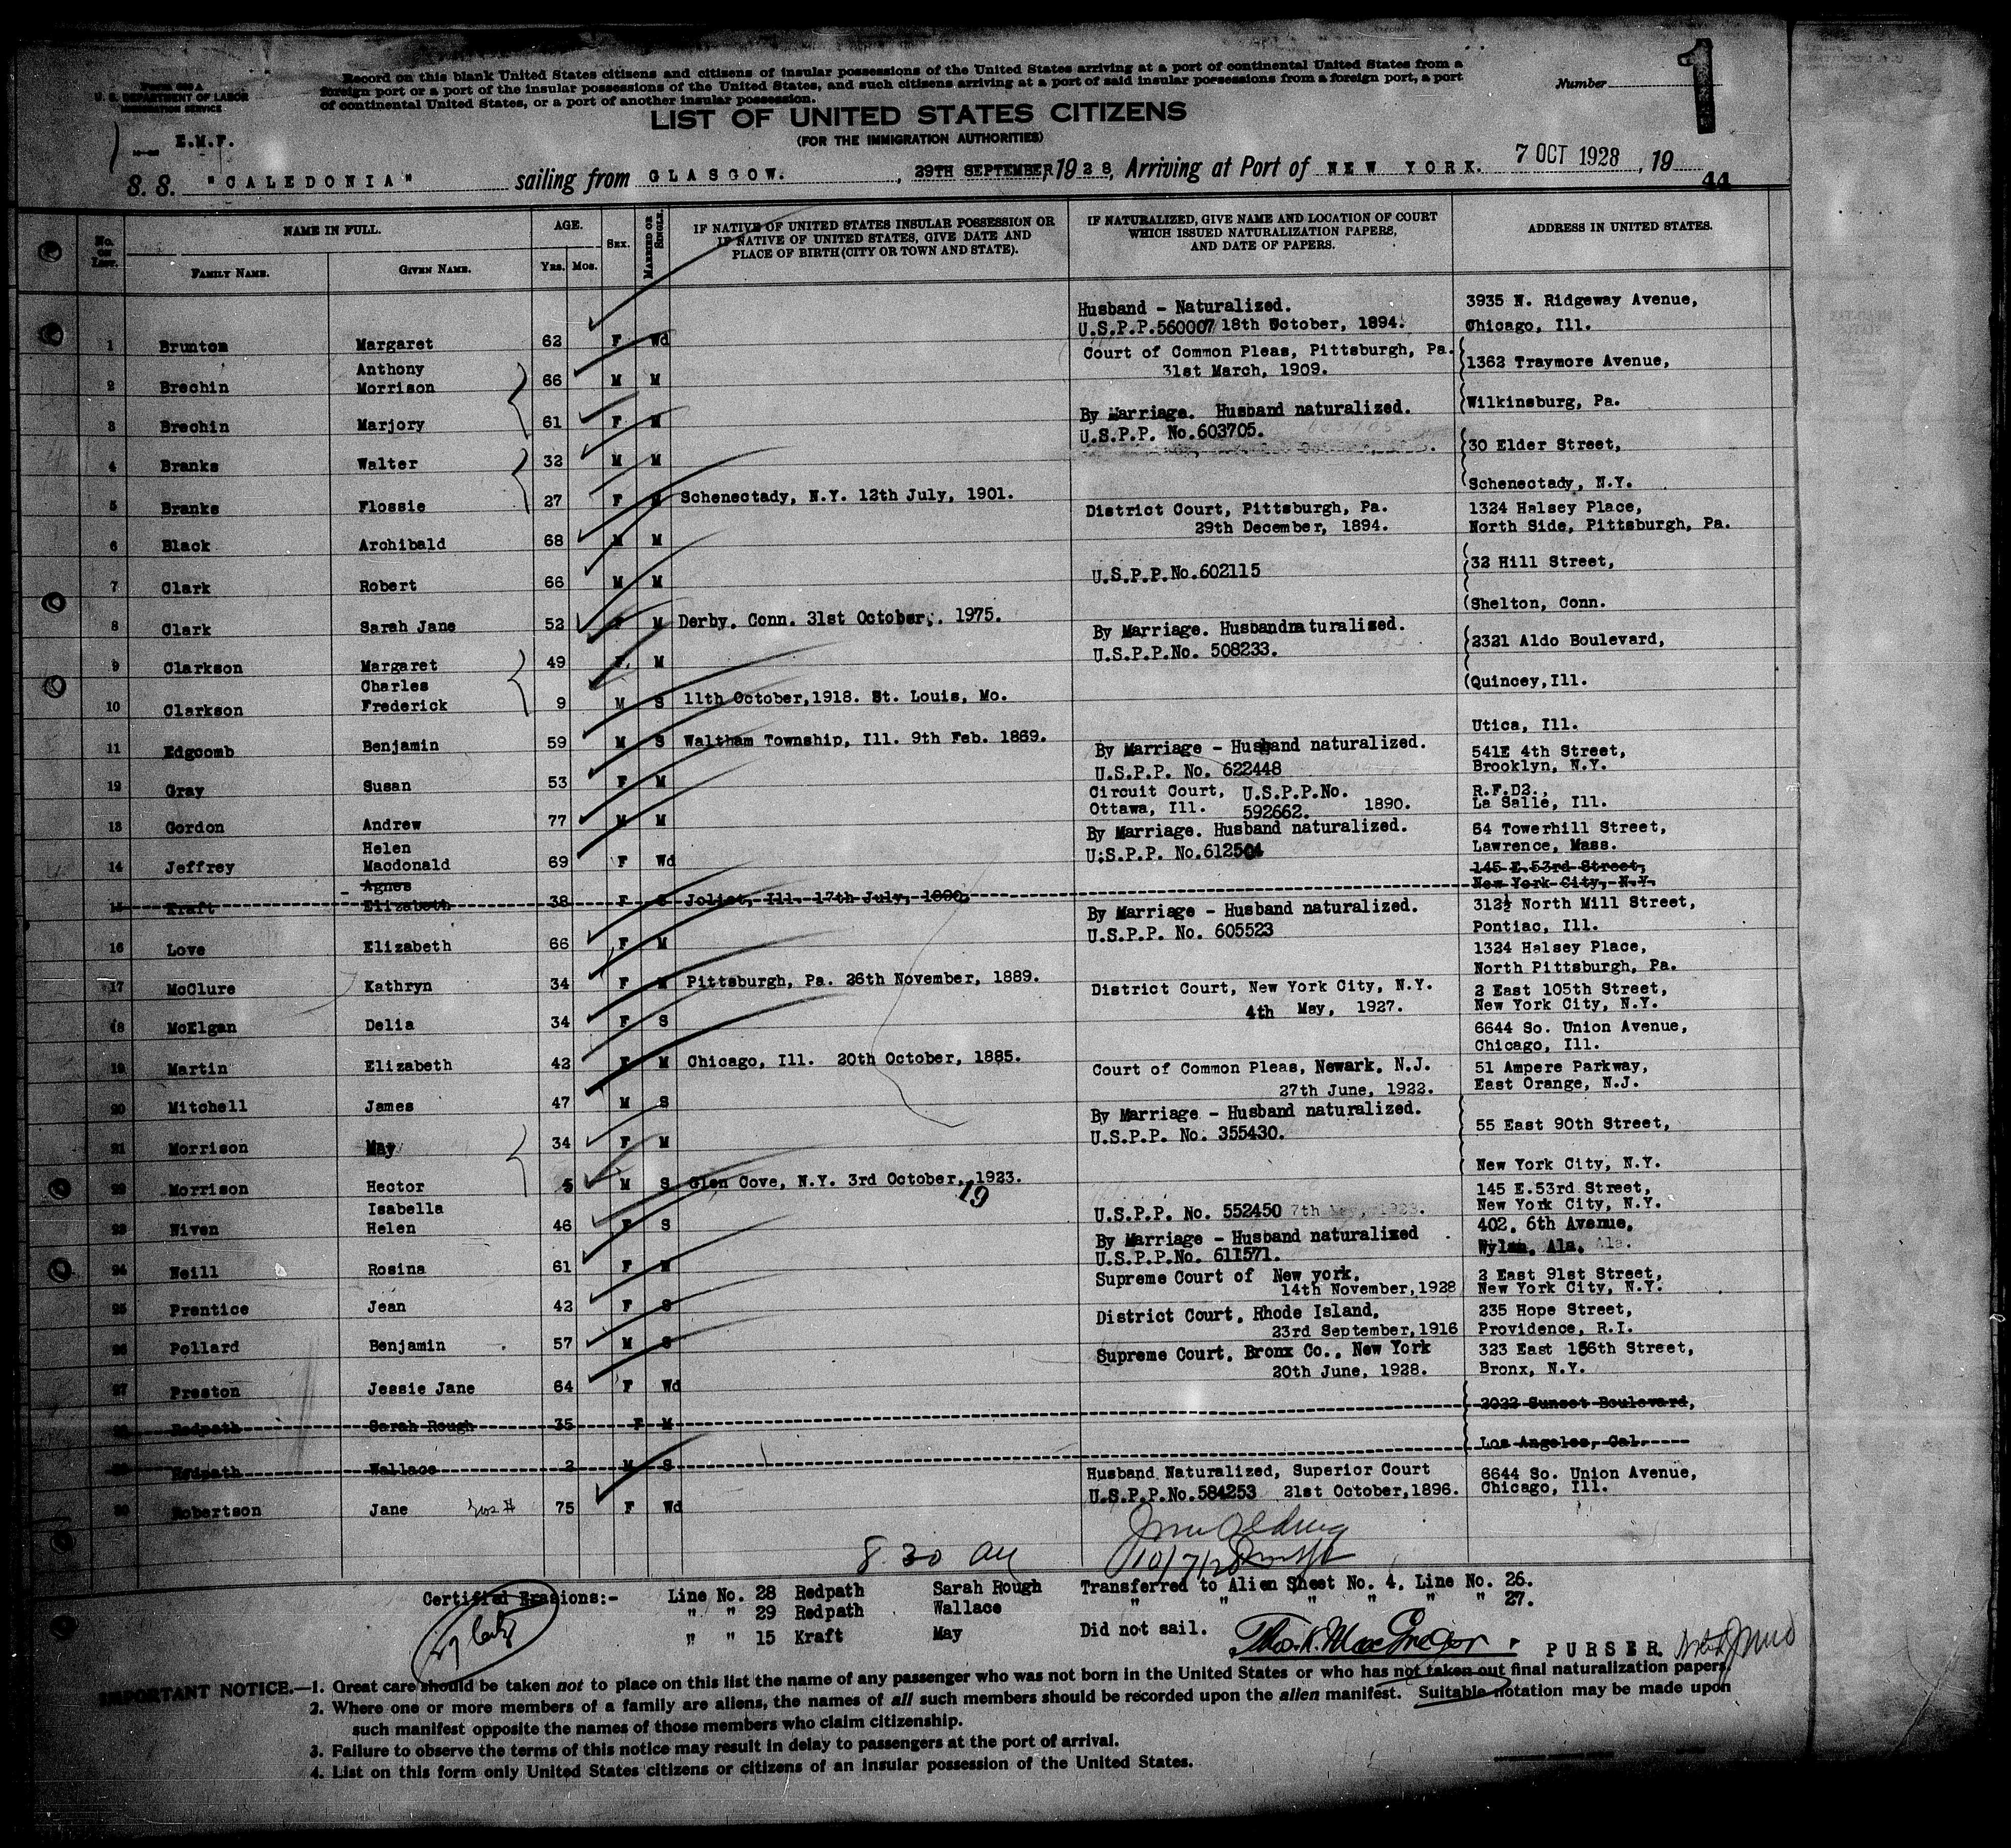 Form 630 A
U. S. DEPARTMENT OF LABOR
IMMIGRATION SERVICE
Record on this blank United States citizens and citizens of insular possessions of the United States arriving at a port of continental United States from a
foreign port or a port of the insular possessions of the United States, and such citizens arriving at a port of said insular possessions from a foreign port, a port
of continental United States, or a port of another insular possession.
Number
1
LIST OF UNITED STATES CITIZENS
(FOR THE IMMIGRATION AUTHORITIES)
E.M.F.
S. S. "CALEDONIA" sailing from GLASGOW. , 29TH SEPTEMBER, 1928, Arriving at Port of NEW YORK. 7 OCT 1928 , 19
44
No. on List. NAME IN FULL. AGE. SEX. MARRIED OR SINGLE. IF NATIVE OF UNITED STATES INSULAR POSSESSION OR IF NATIVE OF UNITED STATES, GIVE DATE AND PLACE OF BIRTH (CITY OR TOWN AND STATE). IF NATURALIZED, GIVE NAME AND LOCATION OF COURT WHICH ISSUED NATURALIZATION PAPERS, AND DATE OF PAPERS. ADDRESS IN UNITED STATES.
FAMILY NAME. GIVEN NAME. Yrs. Mos.
1 Brunton Margaret 62 F Wd Husband - Naturalized. U.S.P.P.560007 18th October, 1894. 3935 N. Ridgeway Avenue, Chicago, Ill.
2 Brechin Anthony Morrison 66 M M Court of Common Pleas, Pittsburgh, Pa. 31st March, 1909. 1362 Traymore Avenue,
3 Brechin Marjory 61 F M By Marriage. Husband naturalized. U.S.P.P. No.603705. Wilkinsburg, Pa.
4 Branks Walter 32 M M 30 Elder Street,
5 Branks Flossie 27 F M Schenectady, N.Y. 12th July, 1901. Schenectady, N.Y.
6 Black Archibald 68 M M District Court, Pittsburgh, Pa. 29th December, 1894. 1324 Halsey Place, North Side, Pittsburgh, Pa.
7 Clark Robert 66 M M U.S.P.P.No.602115 32 Hill Street,
8 Clark Sarah Jane 52 F M Derby. Conn. 31st October,. 1975. Shelton, Conn.
9 Clarkson Margaret 49 F. M By Marriage. Husbandnaturalised. U.S.P.P.No. 508233. 2321 Aldo Boulevard,
10 Clarkson Charles Frederick 9 M S 11th October,1918. St. Louis, Mo. Quincey,Ill.
11 Edgcomb Benjamin 59 M S Waltham Township, Ill. 9th Feb. 1869. Utica, Ill.
12 Gray Susan 53 F M By Marriage - Husband naturalized. U.S.P.P. No. 622448 541E 4th Street, Brooklyn, N.Y.
13 Gordon Andrew 77 M M Circuit Court, U.S.P.P.No. Ottawa, Ill. 592662. 1890. R.F.D2., La Salle, Ill.
14 Jeffrey Helen Macdonald 69 F Wd By Marriage. Husband naturalized. U.S.P.P. No.612504 64 Towerhill Street, Lawrence, Mass.
15 Kraft Agnes Elizabeth 38 F S Joliet, Ill. 17th July, 1890. 145 E.53rd Street, New York City, N.Y.
16 Love Elizabeth 66 F M By Marriage - Husband naturalized. U.S.P.P. No. 605523 312½ North Mill Street, Pontiac, Ill.
17 McClure Kathryn 34 F M Pittsburgh, Pa. 26th November, 1889. 1324 Halsey Place, North Pittsburgh, Pa.
18 McElgan Delia 34 F S District Court, New York City, N.Y. 4th May, 1927. 2 East 105th Street, New York City, N.Y.
19 Martin Elizabeth 42 F M Chicago, Ill. 20th October, 1885. 6644 So. Union Avenue, Chicago, Ill.
20 Mitchell James 47 M S Court of Common Pleas, Newark, N.J. 27th June, 1922. 51 Ampere Parkway, East Orange, N.J.
21 Morrison May 34 F M By Marriage - Husband naturalized. U.S.P.P. No. 355430. 55 East 90th Street,
22 Morrison Hector 5 M S Glen Cove, N.Y. 3rd October, 1923. New York City, N.Y.
19
23 Niven Isabella Helen 46 F S U.S.P.P. No. 552450 145 E.53rd Street, New York City, N.Y.
24 Neill Rosina 61 F M By Marriage - Husband naturalized U.S.P.P.No. 611571. 402. 6th Avenue, Wylam, Ala.
25 Prentice Jean 42 F S Supreme Court of New york, 14th November,1928 2 East 91st Street, New York City, N.Y.
26 Pollard Benjamin 57 M S District Court, Rhode Island, 23rd September,1916 235 Hope Street, Providence, R.I.
27 Preston Jessie Jane 64 F Wd Supreme Court, Bronx Co., New York 20th June, 1928. 323 East 156th Street, Bronx, N.Y.
28 Redpath Sarah Rough 35 F M 2022 Sunset Boulevard,
29 Redpath Wallace 2 M S Los Angeles, Cal.
30 Robertson Jane 75 F Wd Husband Naturalized, Superior Court U.S.P.P.No.584253 21st October,1896. 6644 So. Union Avenue, Chicago, Ill.
8.30 am 10/7/28
Certified Erasions:- Line No. 28 Redpath Sarah Rough Transferred to Alien Sheet No. 4, Line No. 26.
" " 29 Redpath Wallace " " " " " " 27.
" " 15 Kraft May Did not sail.
Thos. K. MacGregor, PURSER.
IMPORTANT NOTICE.—1. Great care should be taken not to place on this list the name of any passenger who was not born in the United States or who has not taken out final naturalization papers.
2. Where one or more members of a family are aliens, the names of all such members should be recorded upon the alien manifest. Suitable notation may be made upon
such manifest opposite the names of those members who claim citizenship.
3. Failure to observe the terms of this notice may result in delay to passengers at the port of arrival.
4. List on this form only United States citizens or citizens of an insular possession of the United States.